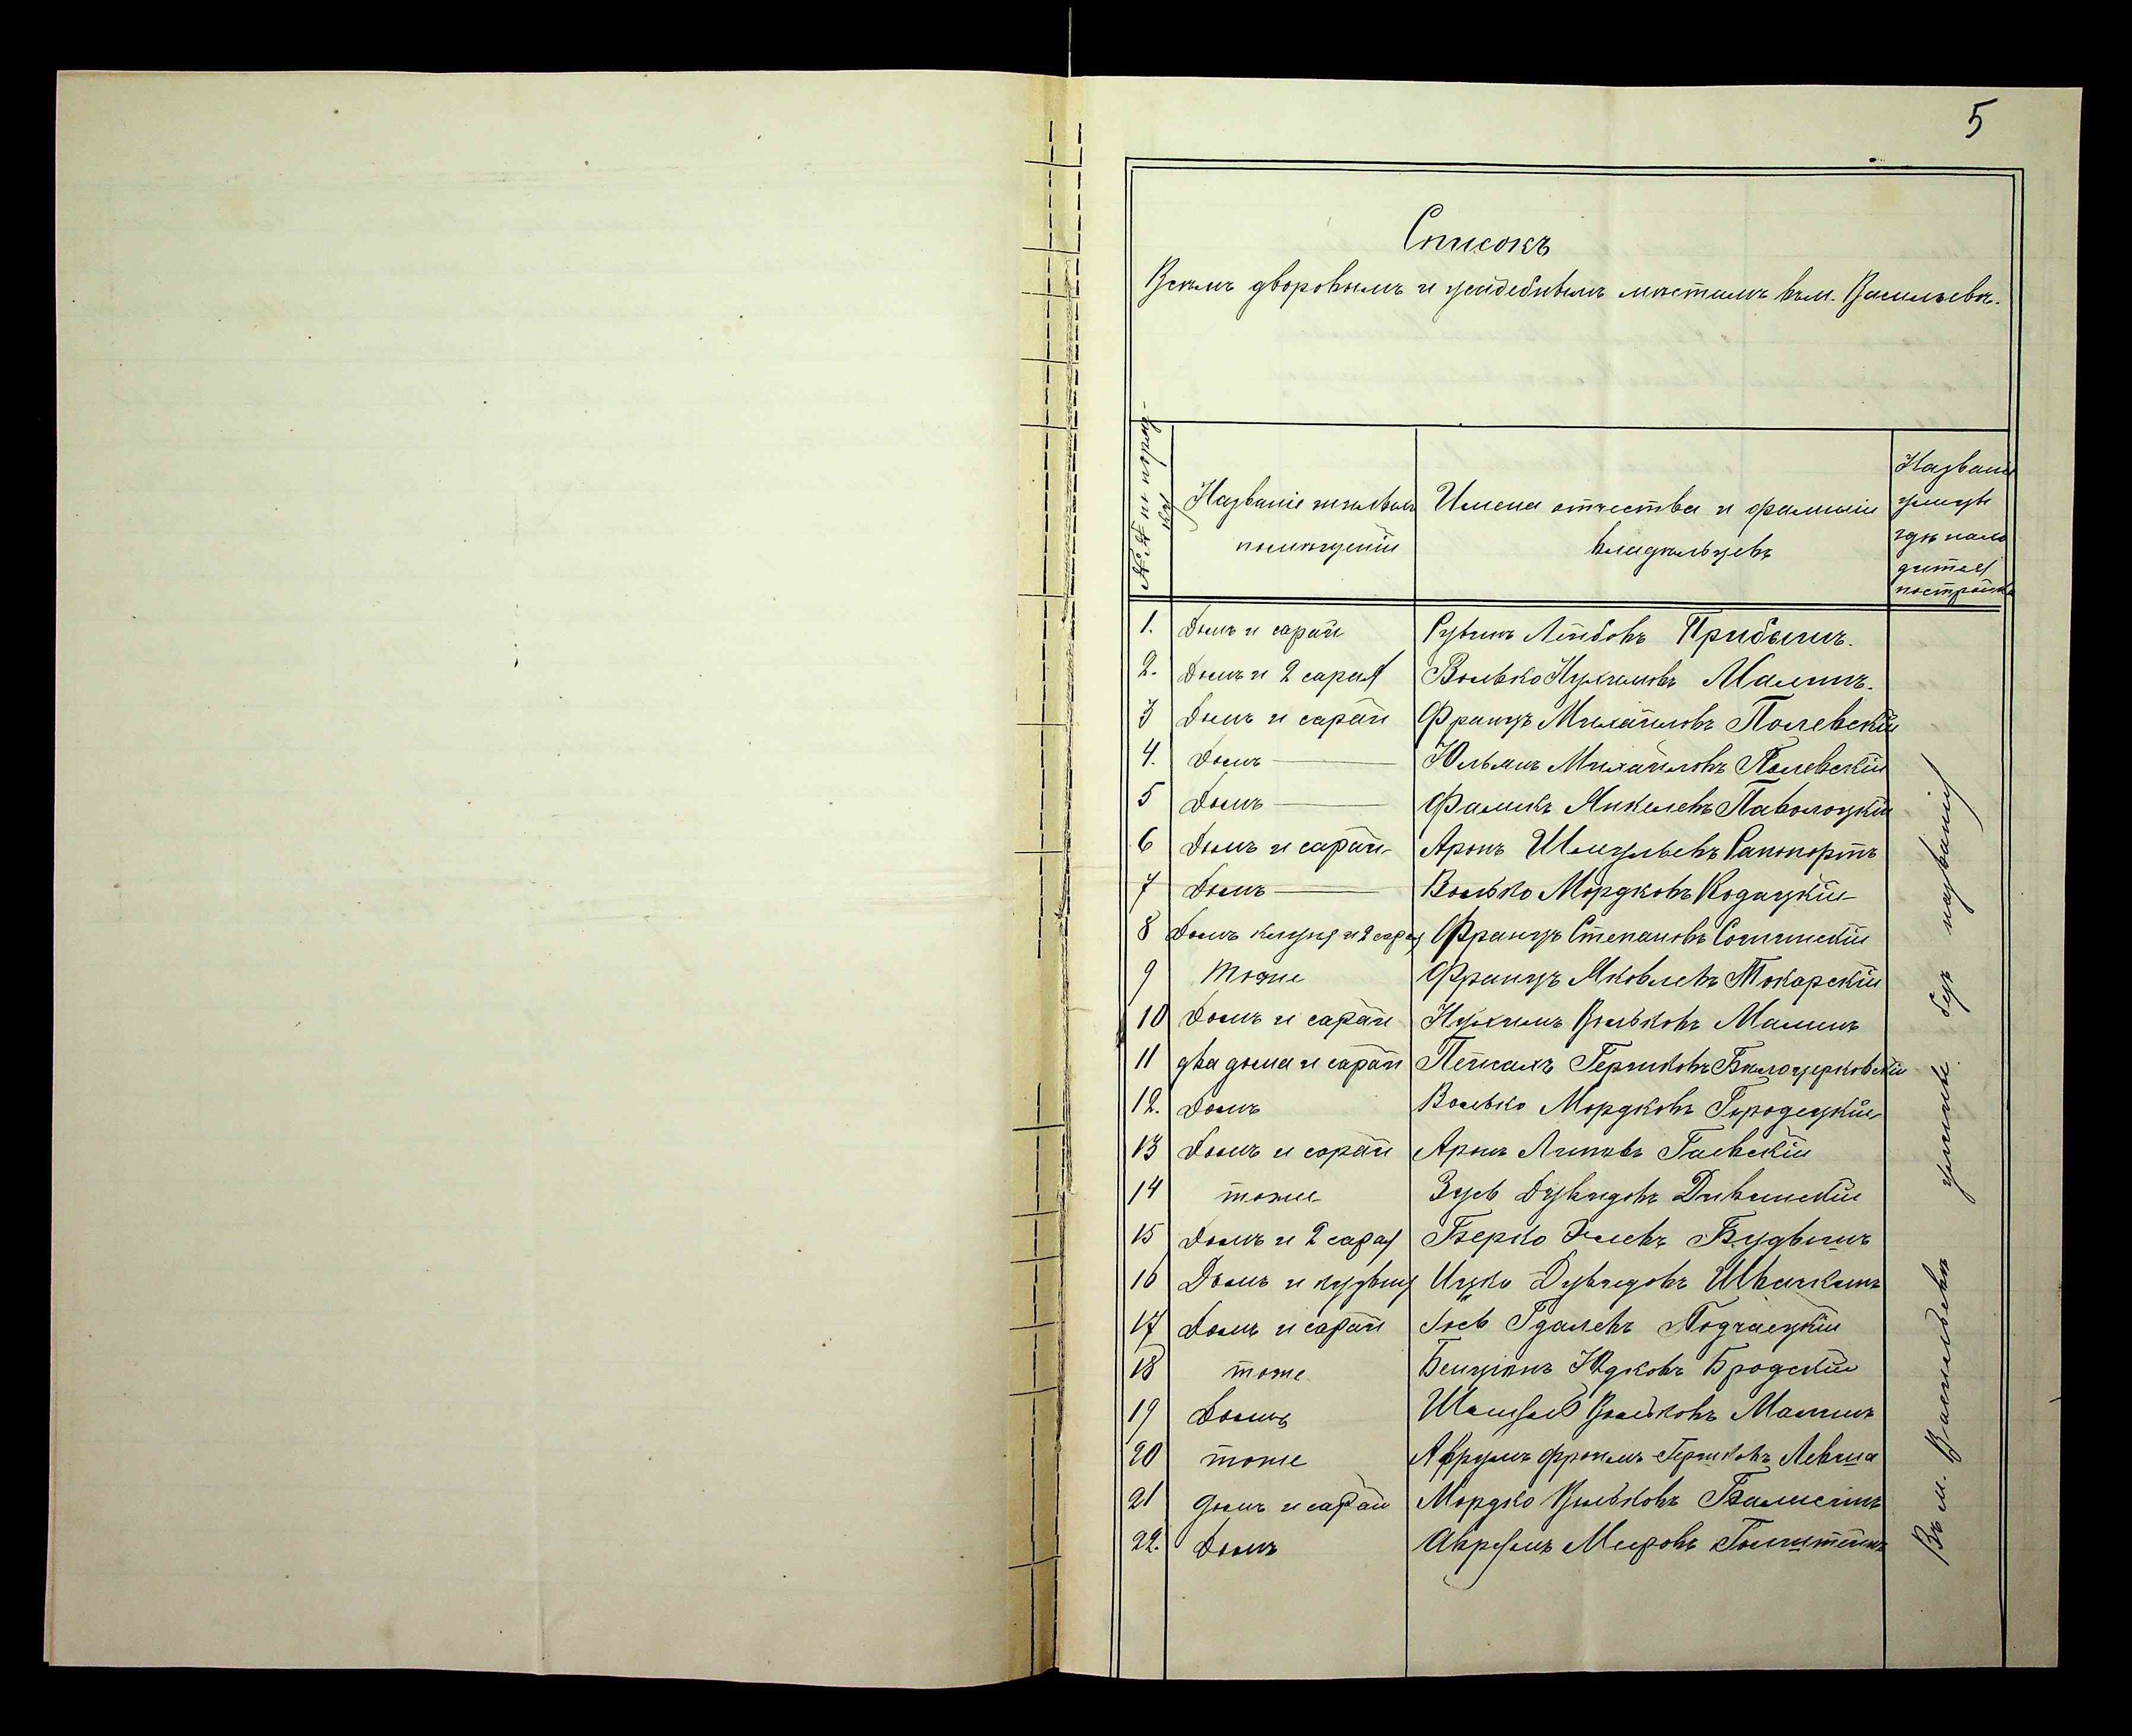 5
Списокъ
Всѣмъ дворовымъ и усадебнымъ мѣстамъ въ м. Васильевѣ.
№№ по поряд-
ку
Названіе жилыхъ
помѣщеній
Имена отчества и фамиліи
владѣльцевъ
Названіе
улицы
гдѣ нахо
дится
постройка
1. Домъ и сарай Рувинъ Лейбовъ Прибышъ.
2. Домъ и 2 сарая Волько Нухимовъ Малинъ.
3 Домъ и сарай Францъ Михайловъ Полевскій
4. Домъ Юльянъ Михайловъ Полевскій
5 Домъ Янкелевъ Паволоцкій
6 Домъ и сарай Аронъ Шмульевъ Рапопортъ
7 Домъ Волько Мордковъ Кодацкій
8 Домъ клуня и 2 сарая Францъ Степановъ
9 Тоже Францъ Яковлевъ Токарскій
10 Домъ и сарай Нухимъ Вольковъ Малинъ
11 два дома и сарай Пейсахъ Гершковъ Бѣлоцерковскій
12. Домъ Волько Мордковъ Городецкій
13 Домъ и сарай Аронъ Липовъ Гаевскій
14 тоже Зусь Дувидовъ Дивинскій
15 Домъ и 2 сарая Берко Элевъ
16 Домъ и кузьня Ицко Дувидовъ
17 Домъ и сарай Іось Гдалевъ Подгаецкій
18 тоже Бенціонъ Юдковъ Бродскій
19 Домъ Шмуль Вольковъ Малинъ
20 тоже Аврумъ Фроимъ Гершковъ Левша
21 домъ и сарай Мордко Вольковъ
22. Домъ Аврумъ Меировъ
Въ м. Васильевѣ улицы безъ названія